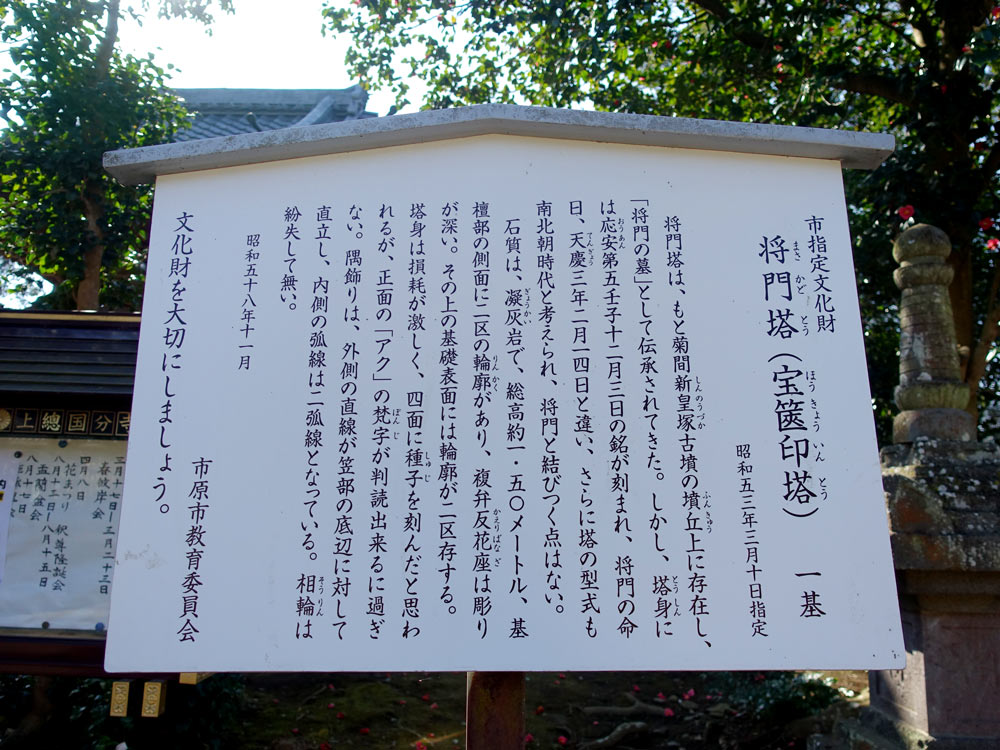 市指定文化財
将門塔（宝篋印塔）　一基
まさ かど とう ほう きょう いん とう
昭和五三年三月十日指定
将門塔は、もと菊間新皇塚古墳の墳丘上に存在し、
しんのうづか ふんきゅう
「将門の墓」として伝承されてきた。しかし、塔身に
とうしん
は応安第五壬子十二月三日の銘が刻まれ、将門の命
おうあん
日、天慶三年二月一四日と違い、さらに塔の型式も
てんぎょう
南北朝時代と考えられ、将門と結びつく点はない。
石質は、凝灰岩で、総高約一・五〇メートル、基
ぎょうかい
檀部の側面に二区の輪廓があり、複弁反花座は彫り
りんかく かえりばなざ
が深い。その上の基礎表面には輪廓が二区存する。
塔身は損耗が激しく、四面に種子を刻んだと思わ
しゅじ
れるが、正面の「アク」の梵字が判読出来るに過ぎ
ぼんじ
ない。隅飾りは、外側の直線が笠部の底辺に対して
直立し、内側の弧線は二弧線となっている。相輪は
そうりん
紛失して無い。
昭和五十八年十一月
市原市教育委員会
文化財を大切にしましょう。
上總国分寺
三月十七日ー三月二十三日
春彼岸会
四月八日
花まつり 釈尊降誕会
八月十三日ー八月十五日
盂蘭盆会
八月十七日